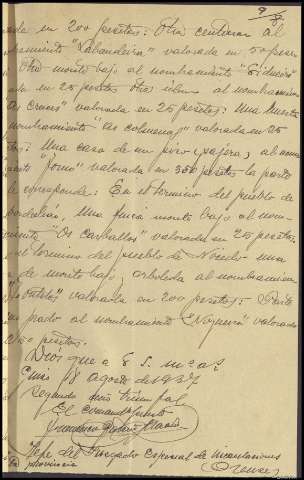 9
ada en 200 pesetas: Otra centenar al
nombramiento "Labandeira" valorada en 50 pesetas
Otra monte bajo al nombramiento
ada en 25 pesetas Otra idem al nombramiento
as cruces" valorada en 25 pesetas: Una huerta
nombramiento "as colmenas" valorada en 25
: Una casa de un piso y pajera, al nom
"forno" valorada en 300 pesetas la parte
e corresponde: En el termino del pueblo de
Una finca monte bajo al nom
"Os Carballos" valorada en 25 pesetas
el termino del pueblo de Nocelo una
a de monte bajo, arbolada al nombramien
valorada en 200 pesetas: Otro
prado al nombramiento "Nogueira" valorado
50 pesetas.
Dios gue a V. S. m. as.
8 agosto de 1937
Segundo año triunfal
El comandante
Jefe del Juzgado Especial de incautaciones
provincia
Orense